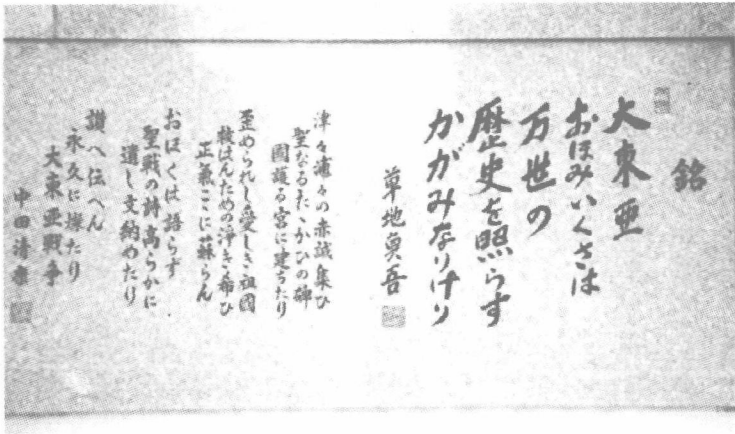 銘
大東亜
おほみいくさは
万世の
歴史を照らす
かがみなりけり
草地貞吾
津々浦々の赤誠集ひ
聖なるたゝかひの碑
國護る宮に建ちたり
歪められし愛しき祖國
救はんための浄き希ひ
正氣ここに蘇らん
おほくは語らず
聖戦の詩高らかに
遺し文納めたり
讃へ伝へん
永久に操たり
大東亜戦争
中田清康